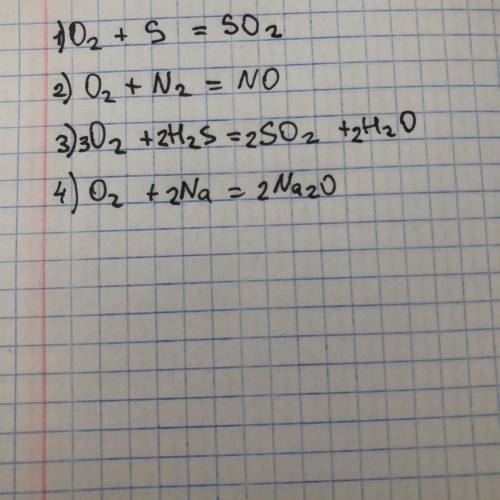 1) O₂ + S = SO₂
2) O₂ + N₂ = NO
3) 3O₂ + 2H₂S = 2SO₂ + 2H₂O
4) O₂ + 2Na = 2Na₂O